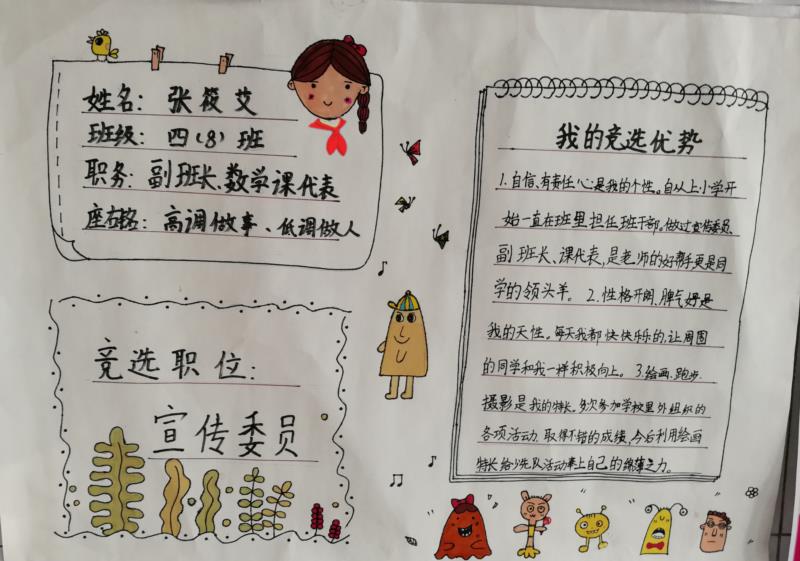 姓名：张筱艾
班级：四（8）班
职务：副班长、数学课代表
座右铭：高调做事、低调做人
竞选职位：
宣传委员
我的竞选优势
1.自信、有责任心是我的个性。自从上小学开
始一直在班里担任班干部，做过宣传委员、
副班长、课代表，是老师的好帮手更是同
学的领头羊。2.性格开朗、脾气好是
我的天性。每天我都快快乐乐的，让周围
的同学和我一样积极向上。3.绘画、跑步、
摄影是我的特长。多次参加学校里外组织的
各项活动，取得不错的成绩，今后利用绘画
特长给少先队活动奉上自己的绵薄之力。